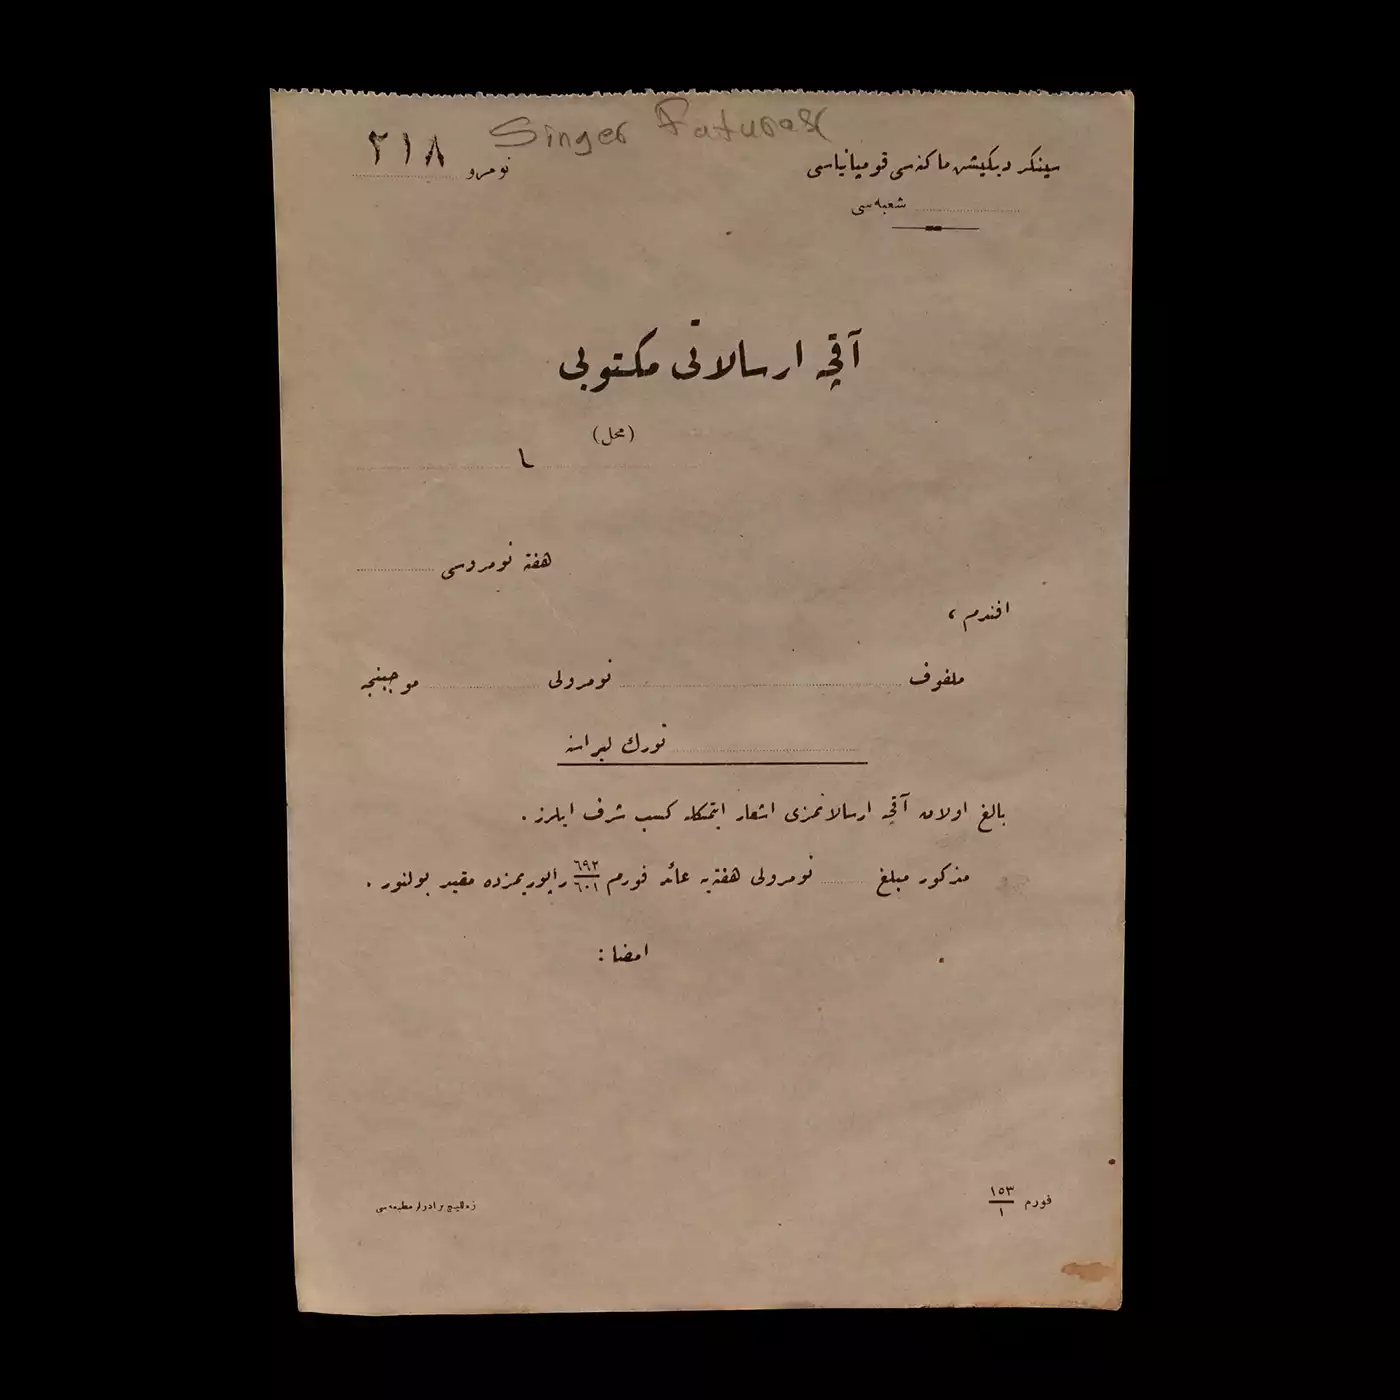 Singer Faturası
سینكر دیكیش ماكنه‌سی قومپانیاسی
نومرو ٢١٨
شعبه‌سی
آقچه ارسالاتی مكتوبی
(محل)
هفته نومروسی
افندم ،
ملفوف نومرولی موجبنجه
تورك لیراسنه
بالغ اولان آقچه ارسالاتمزی اشعار ایتمكله كسب شرف ایلرز .
مذكور مبلغ نومرولی هفته‌یه عائد فورم ٦٩٢/٦٠١ راپوریمزده مقید بولنور .
امضا :
فورم ١٥٣/١
زه‌للیچ برادرلر مطبعه‌سی